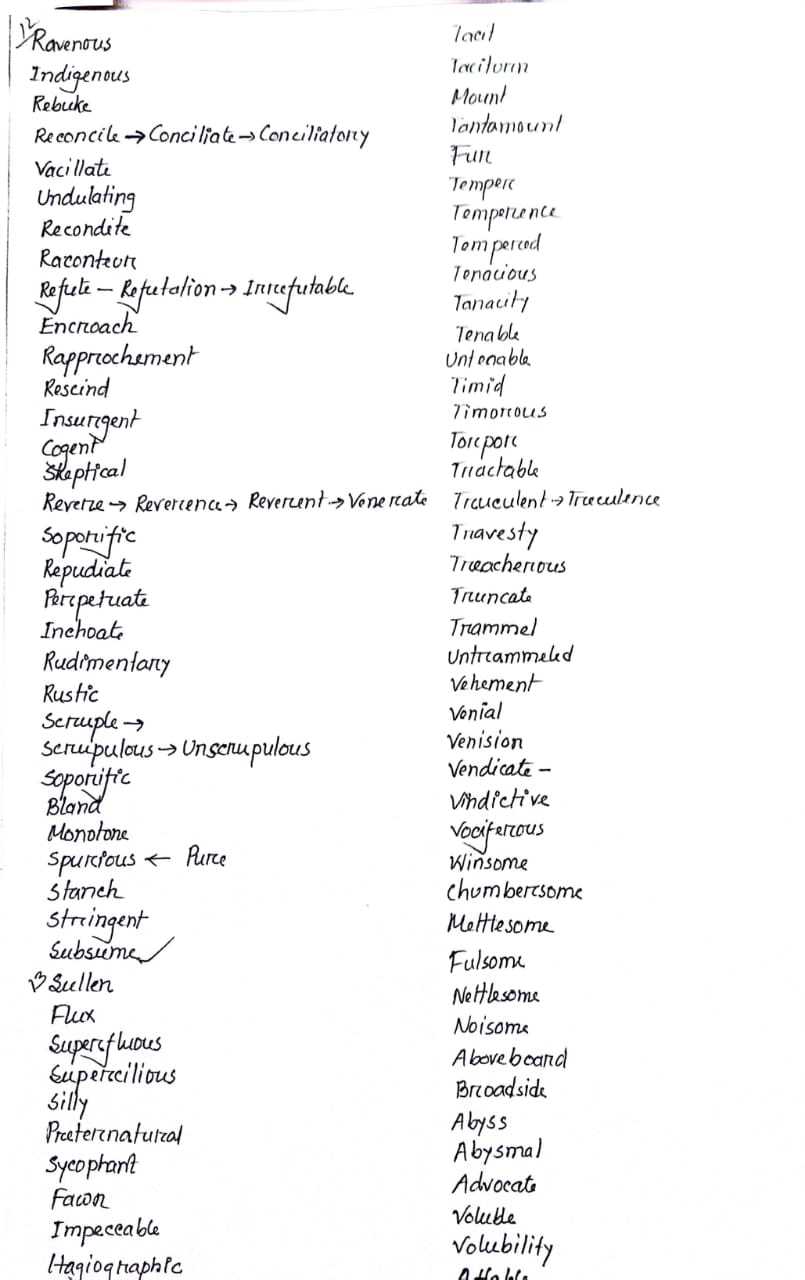 Ravenous
Indigenous
Rebuke
Reconcile → Conciliate → Conciliatory
Vacillate
Undulating
Recondite
Raconteur
Refute — Refutation → Irrefutable
Encroach
Rapprochement
Rescind
Insurgent
Cogent
Skeptical
Revere → Reverence → Reverent → Venerate
Soporific
Repudiate
Perpetuate
Inchoate
Rudimentary
Rustic
Scruple →
Scrupulous → Unscrupulous
Soporific
Bland
Monotone
Spurious ← Pure
Stanch
Stringent
Subsume
Sullen
Flux
Superfluous
Supercilious
Silly
Preternatural
Sycophant
Fawn
Impeccable
Hagiographic
Tacit
Taciturn
Mount
Tantamount
Temper
Temperence
Tempered
Tenacious
Tanacity
Tenable
Untenable
Timid
Timorous
Torpor
Tractable
Truculent → Truculence
Travesty
Treacherous
Truncate
Trammel
Untrammeled
Vehement
Venial
Venision
Vendicate –
Vindictive
Vociferous
Winsome
Chumbersome
Mettlesome
Fulsome
Nettlesome
Noisome
Aboveboard
Broadside
Abyss
Abysmal
Advocate
Voluble
Volubility